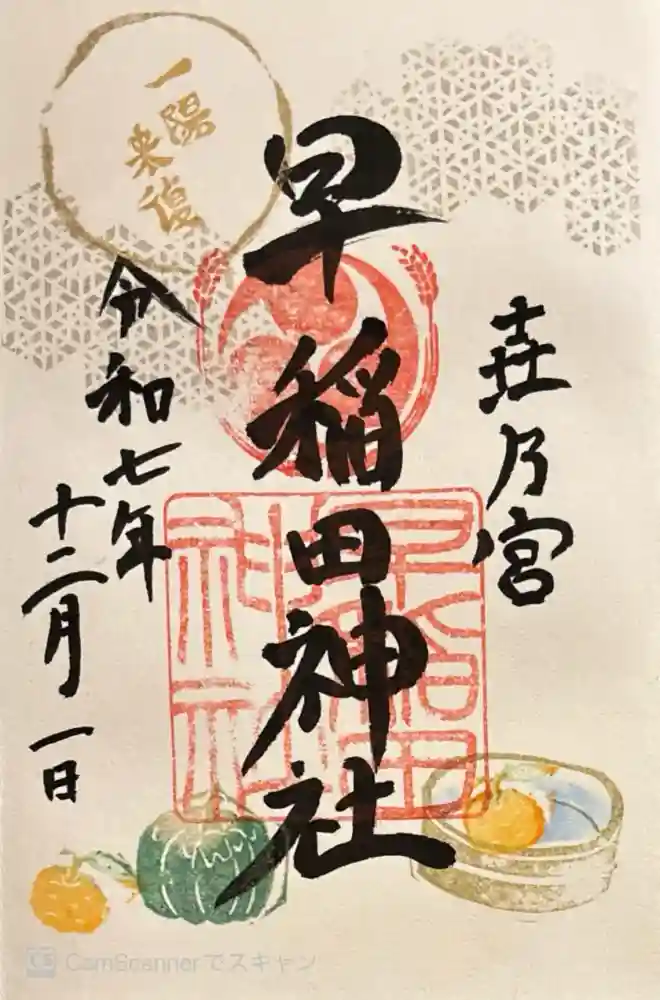 壵乃宮
早稲田神社
令和七年
十二月一日
一陽
来復
早稲田神社
CS CamScannerでスキャン